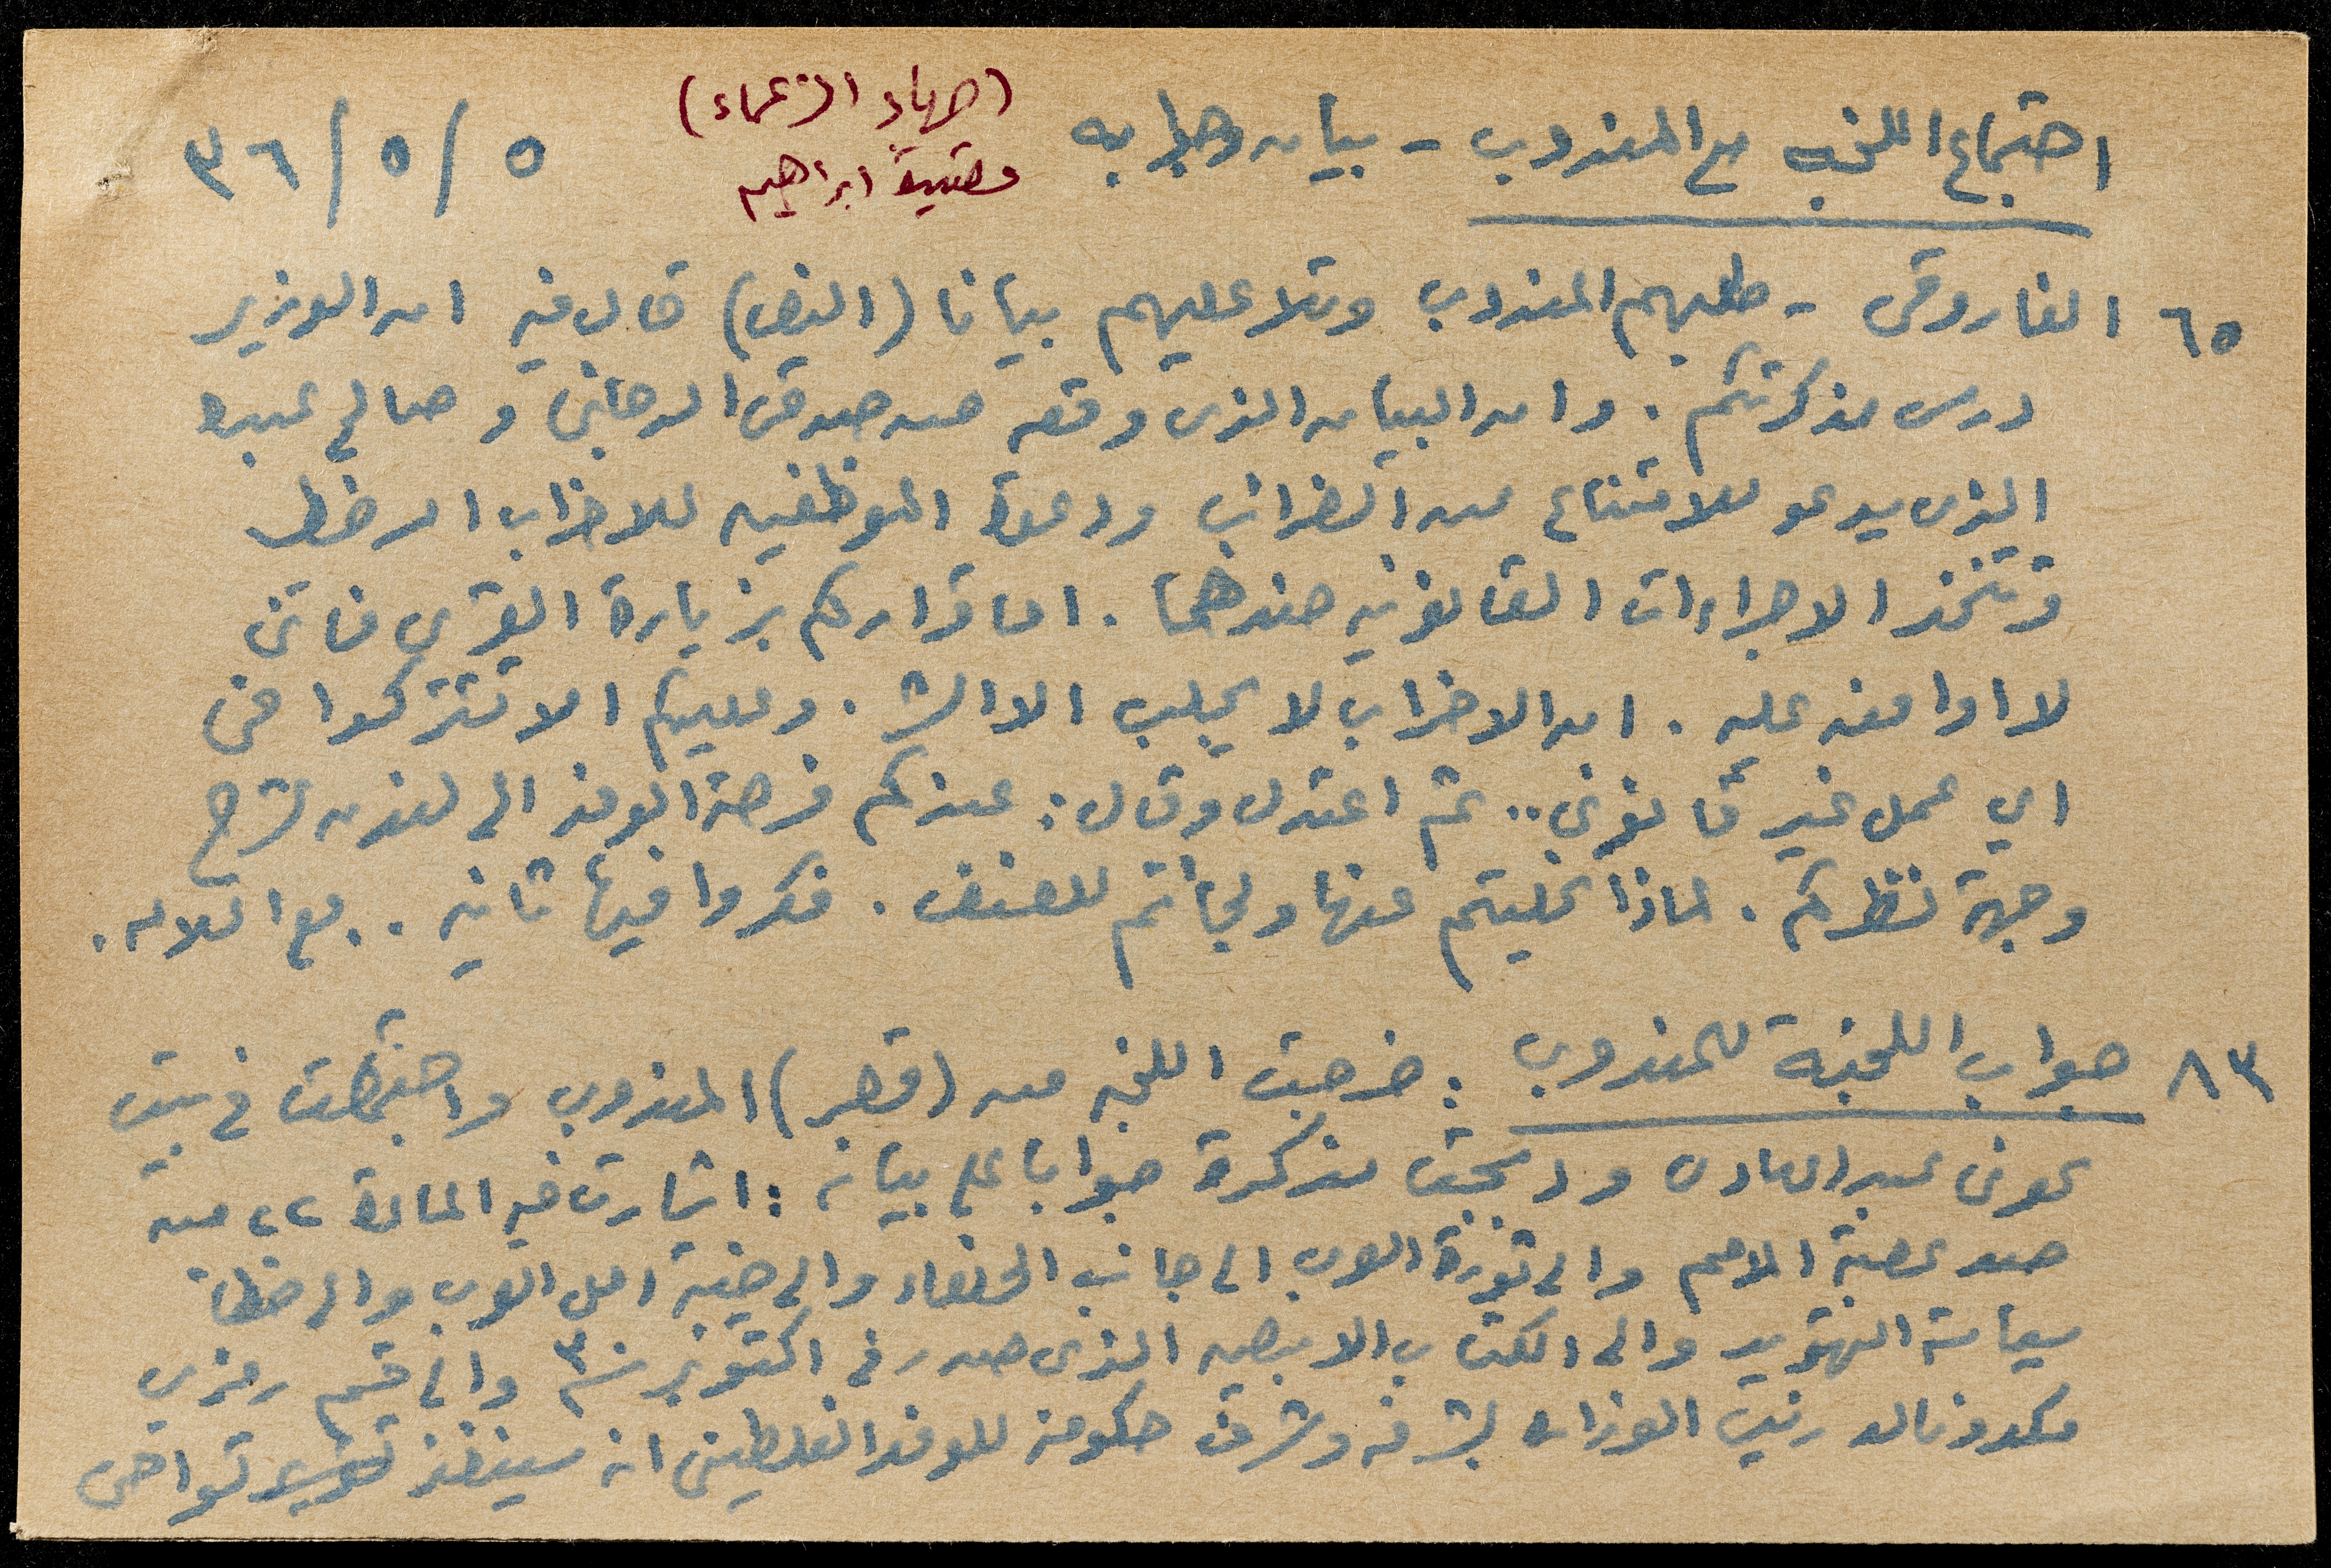 اجتماع اللجنه مع المندوب - بيانه وجوابه
(جهاد الزعماء)
قتيبة ابراهيم
٥ / ٥ / ٣٦
٦٥ الفاروقي - طلبهم المندوب وتلا عليهم بيانا (النص) قال فيه ان الوزير
درس مذكرتكم. وان البيان الذي وقعه حسن صدقي الدجاني و صالح عبده
الذي يدعو للامتناع عن الضرائب ودعوة الموظفين للاضراب
وتتخذ الاجراءات القانونيه ضدهما. اما قراركم بزيارة القرى فانني
لا اوافقه عليه. ان الاضراب لا يجلب الا الشر. وعليكم الا تشتركوا في
اي عمل غير قانوني.. ثم اعتدل وقال: عندكم فرصة الوفد الى لندن لشرح
وجهة نظركم. لماذا تخليتم عنها ولجأتم للعنف. فكروا فيها ثانيه.. مع السلامه.
٨٣ جواب اللجنة للمندوب: خرجت اللجنه من (قصر) المندوب واجتمعت في بيت
عوني عبدالهادي ودبجت مذكرة جوابا على بيانه: اشارت فيه المادة ٢٢ من
عصبة الامم والى ثورة العرب الى جانب الحلفاء والى خيبة امل العرب والى خطأ
سياسة التهويد والى الكتاب الابيض الذي صدر في اكتوبر سنة ٣٠ والى قسم رمزي
مكدونالد رئيس الوزراء بشرفه وشرف حكومته للوفد الفلسطيني انه سينفذ